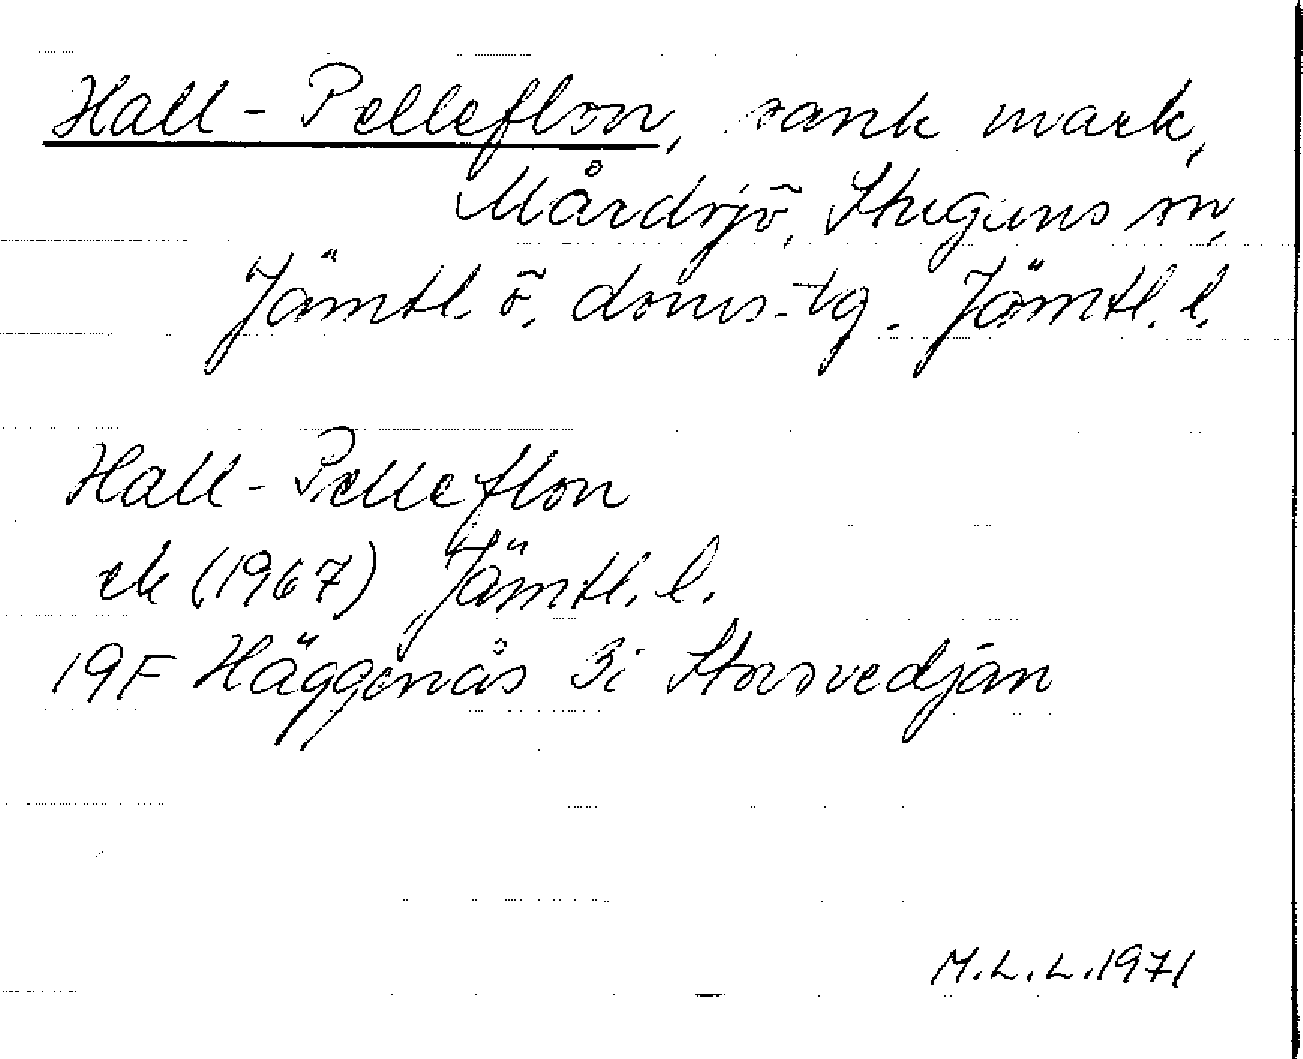 Hall-Pelleflon, sank mark,
Mårdsjö, Stuguns sn,
Jämtl. ö. doms-tg. Jämtl. l.
Hall-Pelleflon
ek (1967) Jämtl. l.
19F Häggenås 3i Storsvedjan
M.L.L.1971